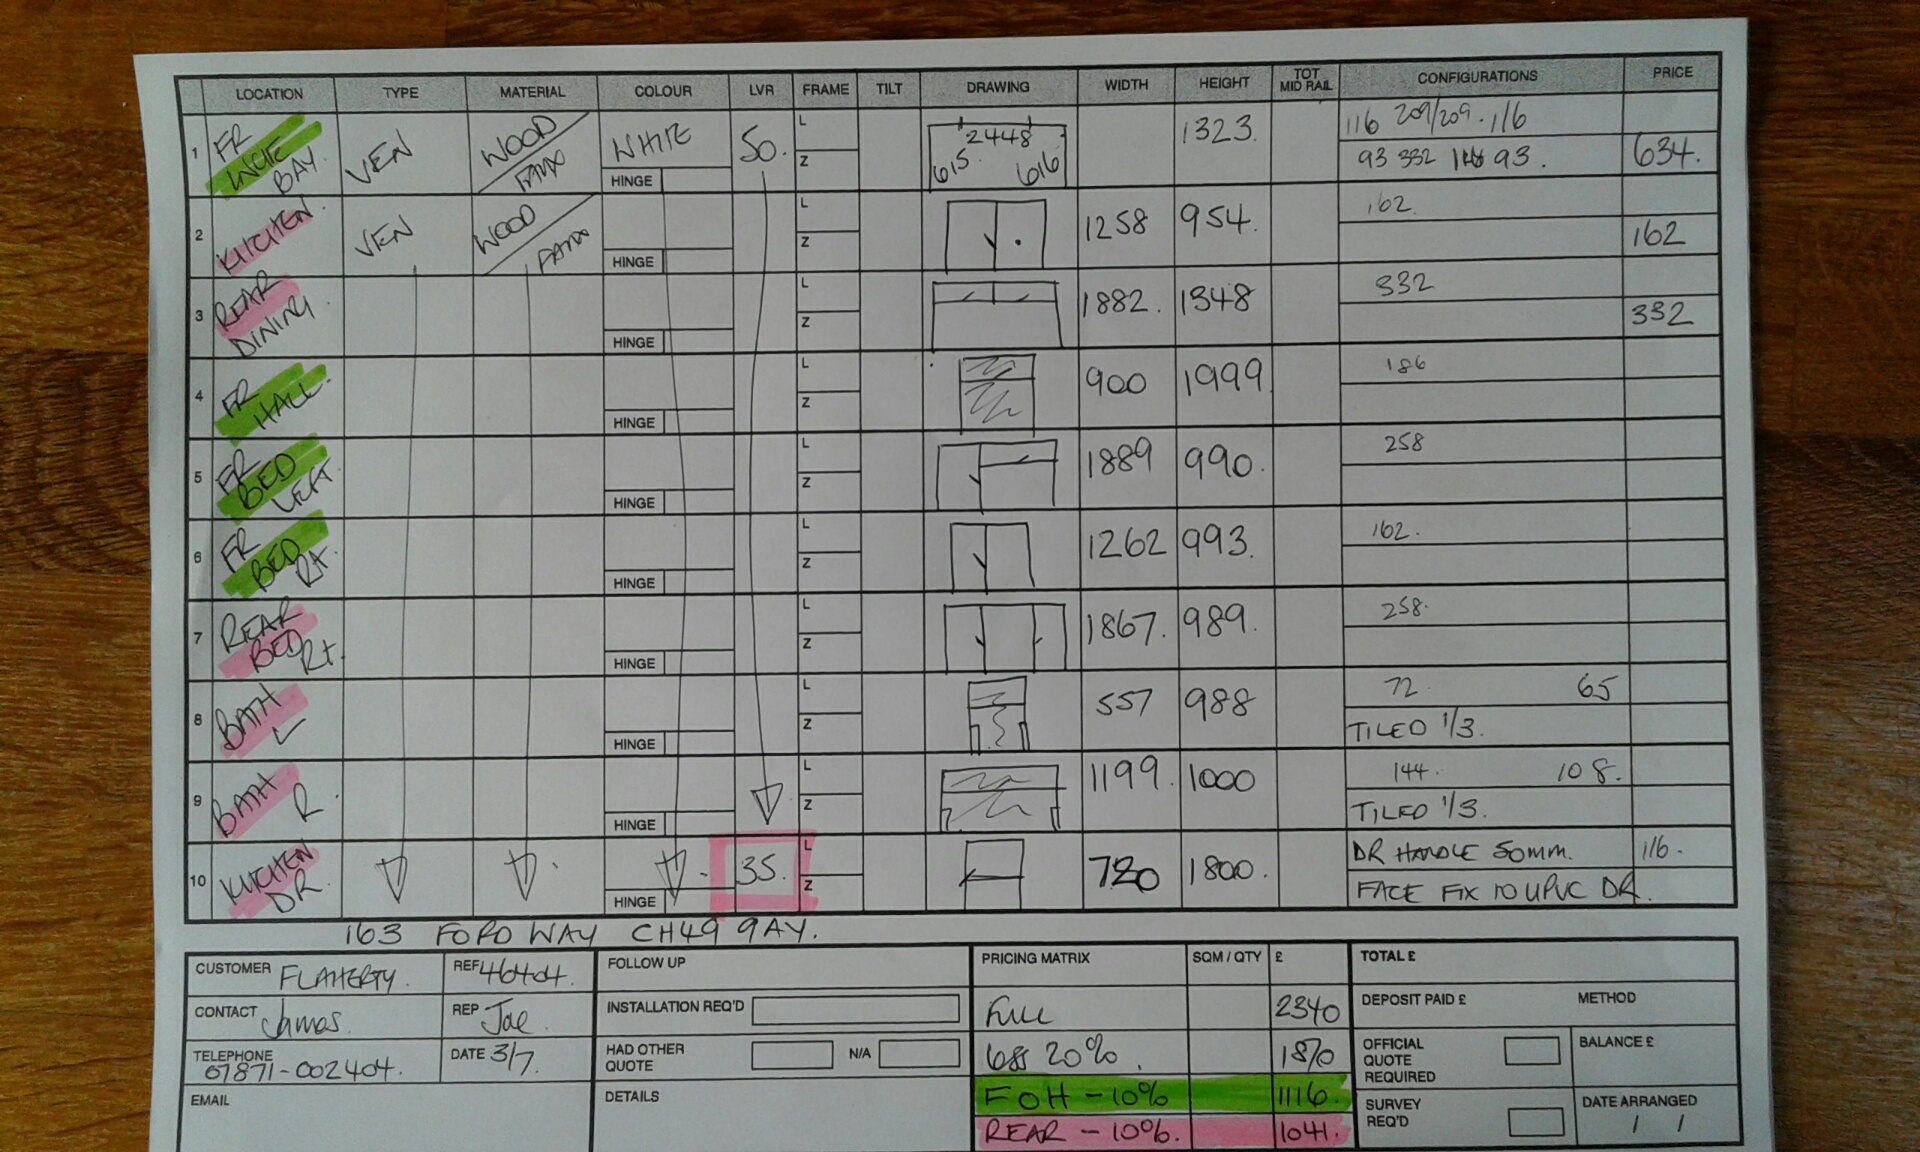 LOCATION TYPE MATERIAL COLOUR LVR FRAME TILT DRAWING WIDTH HEIGHT TOT MID RAIL CONFIGURATIONS PRICE
1 FR BAY VEN WOOD WHITE 50. L 2448 615 616 1323. 116 209/209 . 116
HINGE Z 93 332 93. 634.
2 KITCHEN. VEN WOOD L 1258 954. 162.
HINGE Z 162
3 REAR DINING L 1882. 1348 332
HINGE Z 332
4 FR HALL. L 900 1999 186
HINGE Z
5 FR BED LEFT. L 1889 990. 258
HINGE Z
6 FR BED Rt. L 1262 993. 162.
HINGE Z
7 REAR BED Rt. L 1867. 989. 258.
HINGE Z
8 BATH L L 557 988 72. 65
HINGE Z TILED 1/3.
9 BATH R. L 1199. 1000 144. 108.
HINGE Z TILED 1/3.
10 KITCHEN DR. 35. L 720 1800. DR HANDLE 50mm. 116.
HINGE Z FACE FIX TO UPVC DR.
163 FORD WAY CH49 9AY.
CUSTOMER FLAHERTY. REF 46404.
CONTACT James.
REP Joe.
TELEPHONE 07871-002404.
DATE 3/7.
EMAIL
FOLLOW UP
INSTALLATION REQ'D
HAD OTHER QUOTE N/A
DETAILS
PRICING MATRIX SQM / QTY £
FULL 2340
less 20%. 1870
FOH - 10% 1116.
REAR - 10%. 1041.
TOTAL £
DEPOSIT PAID £ METHOD
OFFICIAL QUOTE REQUIRED
BALANCE £
SURVEY REQ'D
DATE ARRANGED
/ /